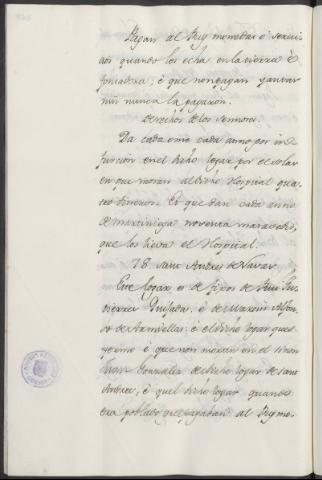 Pegan al Rey monedas é servici
nos quando los echa en la tierra é
fonsadera; é que non pagan yantar
nin nunca la pagaron.
Derechos de los sennores.
Da cada ome cada anno por in
furcion en el dicho logar por el solar
en que moran al dicho Hospital qua
tro dineros. Et que dan cada anno
de martiniega noventa maravedis,
que los lieva el Hospital.
78. Sant Andres de
Este logar es de fijos de Rui Gu
tierrez Quijada, é de Martin Alfon
so de Arniellas; é el dicho logar que es
yermo é que non moran en el
Gonzalez del dicho logar de sant
Andres; é quel dicho logar quando
era poblado que pagaban al Rey mo-